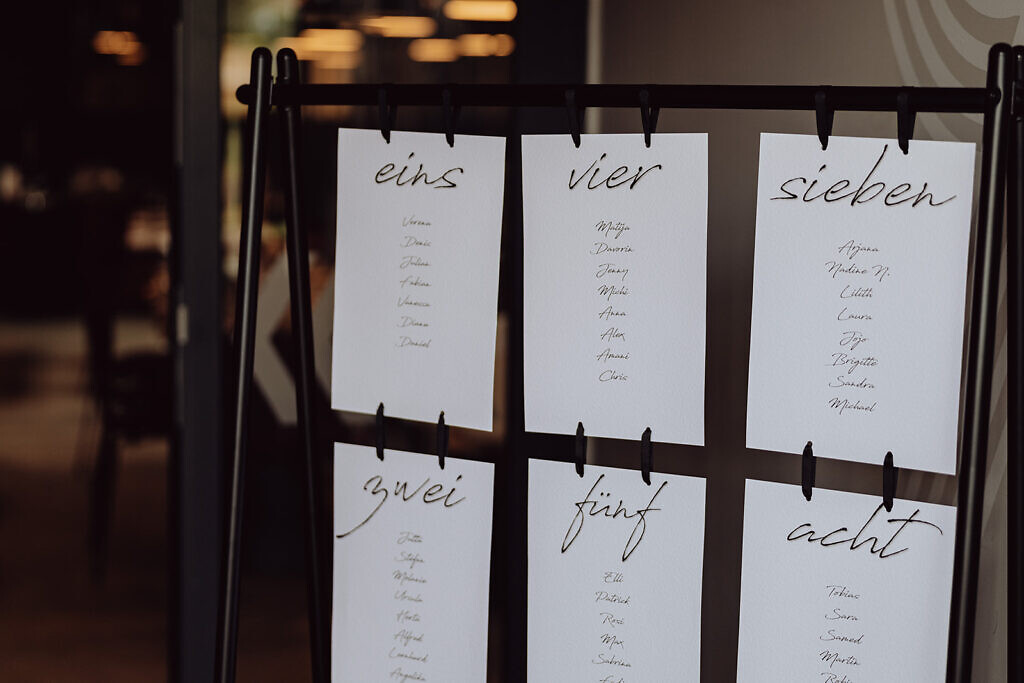 eins
Verena
Denic
Julian
Fabian
Vanessa
Diana
Daniel
zwei
Jutta
Stefan
Melanie
Ursula
Herta
Alfred
Leonhard
Angelika
vier
Matija
Davorin
Jenny
Michi
Anna
Alex
Amani
Chris
fünf
Elli
Patrick
Rosi
Max
Sabrina
sieben
Arjana
Nadine N.
Lilith
Laura
Jojo
Brigitte
Sandra
Michael
acht
Tobias
Sara
Samed
Martin